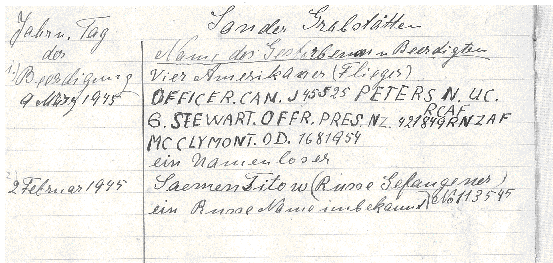 Jahr u. Tag der Beerdigung
Sander Grabstätten
Name des Gestorbenen u Beerdigten
1.) 9 März 1945
Vier Amerikaner (Flieger)
OFFICER. CAN. J 45525 PETERS. N. UC.
RCAF
G. STEWART. OFFR. PRES. NZ. 421849 RNZAF
MC CLYMONT. OD. 1681954
ein Namenloser
2 Februar 1945
Saemen Titow (Russe Gefangener)
ein Russe Name unbekannt) No 113545